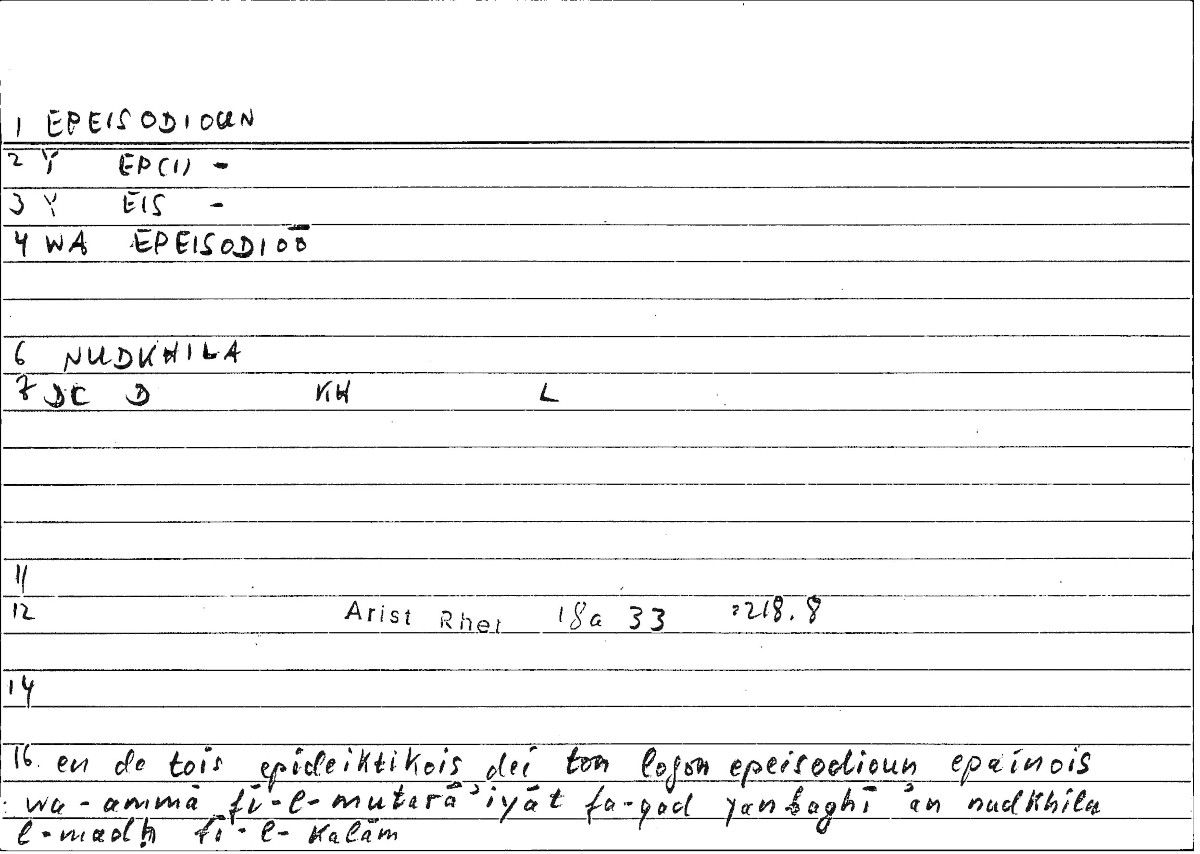 1 EPEISODIOUN
2 Y EP(I) -
3 Y EIS -
4 WA EPEISODIOŌ
6 NUDKHILA
7 DC D KH L
11
12 Arist Rhet 18a 33 =218.8
14
16. en de tois epideiktikois dei ton logon epeisodioun epainois
: wa-ammā fī-l-mutarā'iyāt fa-qad yanbaghī 'an nudkhila
l-madḥ fī-l-kalām